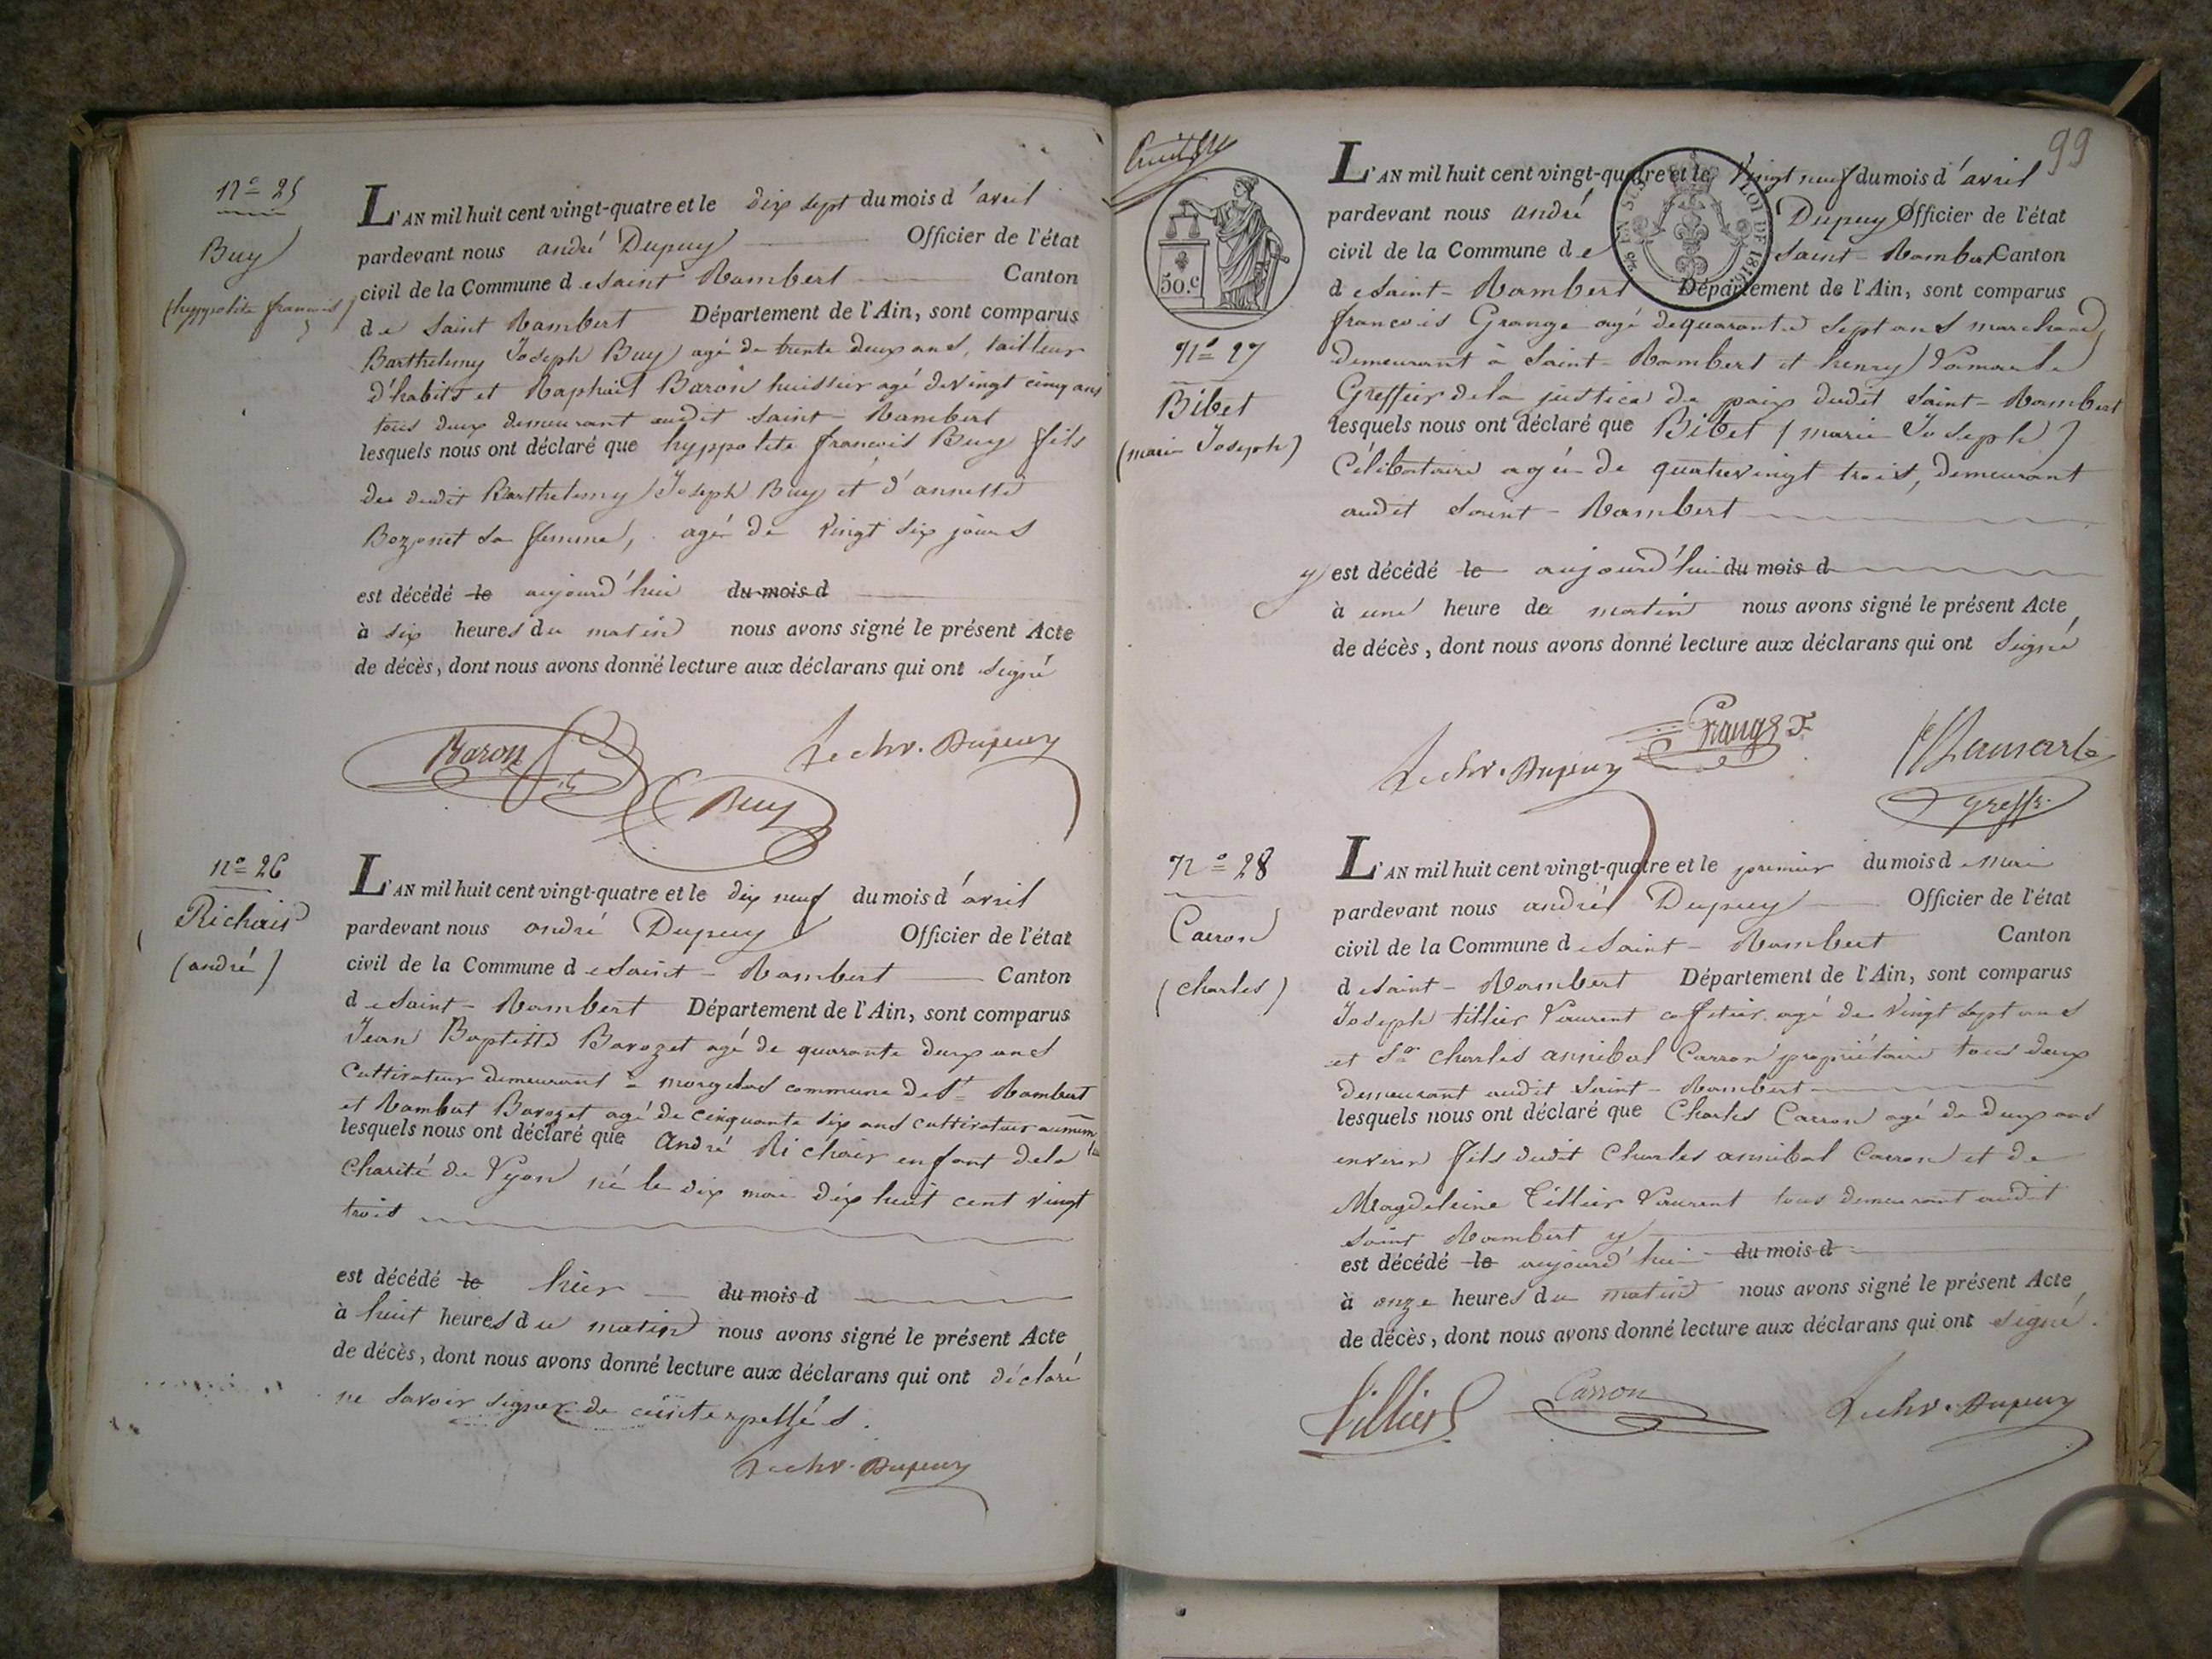 n° 25
Buy
(hyppolite francois)
L'AN mil huit cent vingt-quatre et le dix sept du mois d'avril
pardevant nous andré Dupuy Officier de l'état
civil de la Commune de Saint Rambert Canton
de Saint Rambert Département de l'Ain, sont comparus
Barthelemy Joseph Buy agé de trente deux ans, tailleur
d'habits et Raphaël Baron huissier agé de vingt cinq ans
tous deux demeurant audit Saint-Rambert
lesquels nous ont déclaré que hyppolite francois Buy fils
du dudit Barthelemy Joseph Buy et d'annette
Bozonet sa femme, agé de vingt six jours
est décédé le aujourd'hui du mois d
à six heures du matin nous avons signé le présent Acte
de décès, dont nous avons donné lecture aux déclarans qui ont signé
Baron
Le chv. Dupuy
Buy
n° 26
Richair
(andré)
L'AN mil huit cent vingt-quatre et le dix neuf du mois d'avril
pardevant nous andré Dupuy Officier de l'état
civil de la Commune de Saint-Rambert Canton
de Saint-Rambert Département de l'Ain, sont comparus
Jean Baptiste Barozet agé de quarante deux ans
Cultivateur demeurant à morgelas commune de St Rambert
et Rambert Barozet agé de cinquante six ans cultivateur au mem
lesquels nous ont déclaré que André Richair enfant dela
Charité de Lyon né le dix mai dix huit cent vingt
trois
est décédé le hier du mois d
à huit heures du matin nous avons signé le présent Acte
de décès, dont nous avons donné lecture aux déclarans qui ont déclaré
ne savoir signer de ce interpellés.
Le chv. Dupuy
99
50.c
LOI DE 1816
L'AN mil huit cent vingt-quatre et le vingt neuf du mois d'avril
pardevant nous andré Dupuy Officier de l'état
civil de la Commune de Saint-Rambert Canton
de Saint-Rambert Département de l'Ain, sont comparus
n° 27
Bibet
(marie Joseph)
francois Grange agé de quarante sept ans marchand
demeurant à Saint-Rambert et henry Lamarle
Greffier de la justice de paix dudit Saint-Rambert
lesquels nous ont déclaré que Bibet (marie Joseph)
Célibataire agée de quatrevingt trois, demeurant
audit Saint-Rambert
y est décédé le aujourd'hui du mois d
à une heure de matin nous avons signé le présent Acte
de décès, dont nous avons donné lecture aux déclarans qui ont signé
Le chv. Dupuy
Grange F.
Lamarle
greffr.
n° 28
Carron
(charles)
L'AN mil huit cent vingt-quatre et le premier du mois de mai
pardevant nous andré Dupuy Officier de l'état
civil de la Commune de Saint-Rambert Canton
de Saint-Rambert Département de l'Ain, sont comparus
Joseph tillier Laurent caffetier agé de vingt sept ans
et Sr charles annibal Carron propriétaire tous deux
demeurant audit Saint-Rambert
lesquels nous ont déclaré que Charles Carron agé de deux ans
environ fils dudit Charles annibal Carron et de
Magdeleine Tillier Laurent tous demeurant audit
saint Rambert y
est décédé le aujourd'hui du mois d
à onze heures du matin nous avons signé le présent Acte
de décès, dont nous avons donné lecture aux déclarans qui ont signé.
Tillier
Carron
Le chv. Dupuy